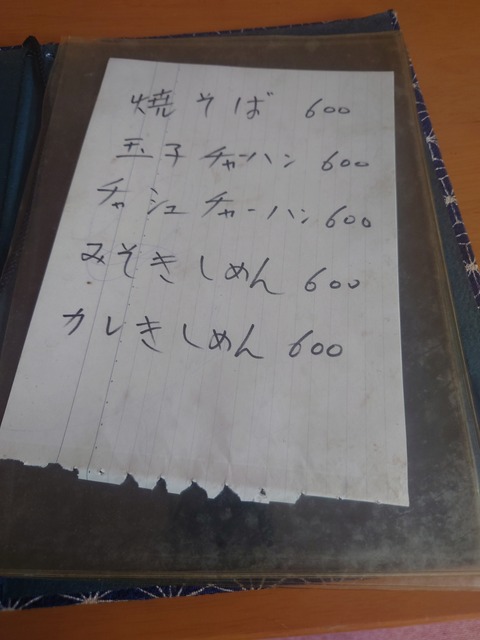 焼そば 600
玉子チャーハン 600
チャシュチャーハン 600
みそきしめん 600
カレきしめん 600